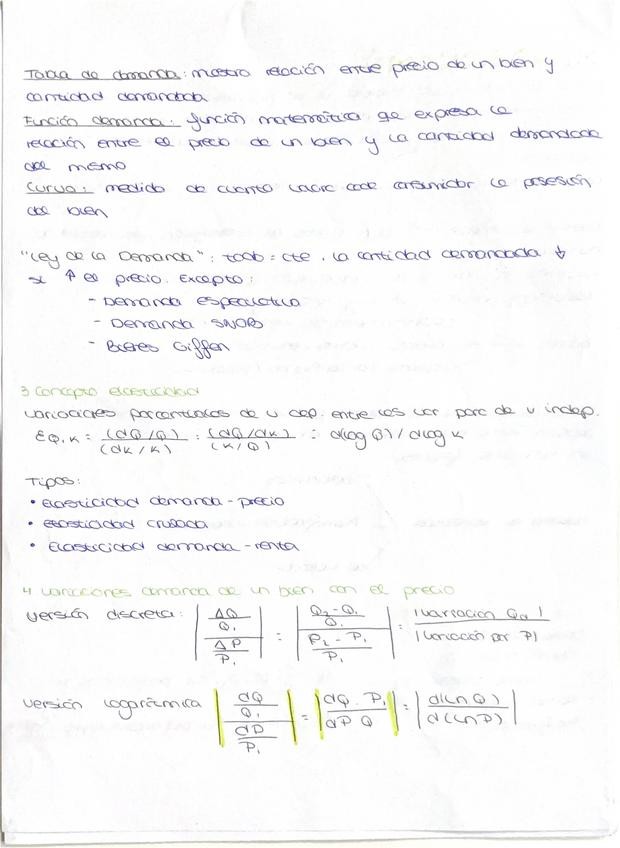 Tabla de demanda: mostra relación entre precio de un bien y
cantidad demandada
Función demanda: función matemática qe expresa la
relación entre el precio de un bien y la cantidad demandada
del mismo
Curva: medida de cuanto valora cada consumidor la posesión
del bien
"Ley de la Demanda": todo = cte, la cantidad demandada ↓
si ↑ el precio. Excepto:
- Demanda especulativa
- Demanda SNOB
- Bienes Giffen
3 Concepto elasticidad
variaciones porcentuales de v dep. entre las var porc de v indep.
EQ,K = (dQ/Q) / (dK/K) = (dQ/dK) / (K/Q) = d(log Q) / d log K
Tipos:
• Elasticidad demanda - precio
• Elasticidad cruzada
• Elasticidad demanda - renta
4 Variaciones demanda de un bien con el precio
Versión discreta: | (ΔQ/Q₁) / (ΔP/P₁) | = | ((Q₂-Q₁)/Q₁) / ((P₂-P₁)/P₁) | = |variación Qd| / |variación por P|
Versión logarítmica | (dQ/Q₁) / (dP/P₁) | = | dQ · P₁ / dP Q | = | d(ln Q) / d(ln P) |